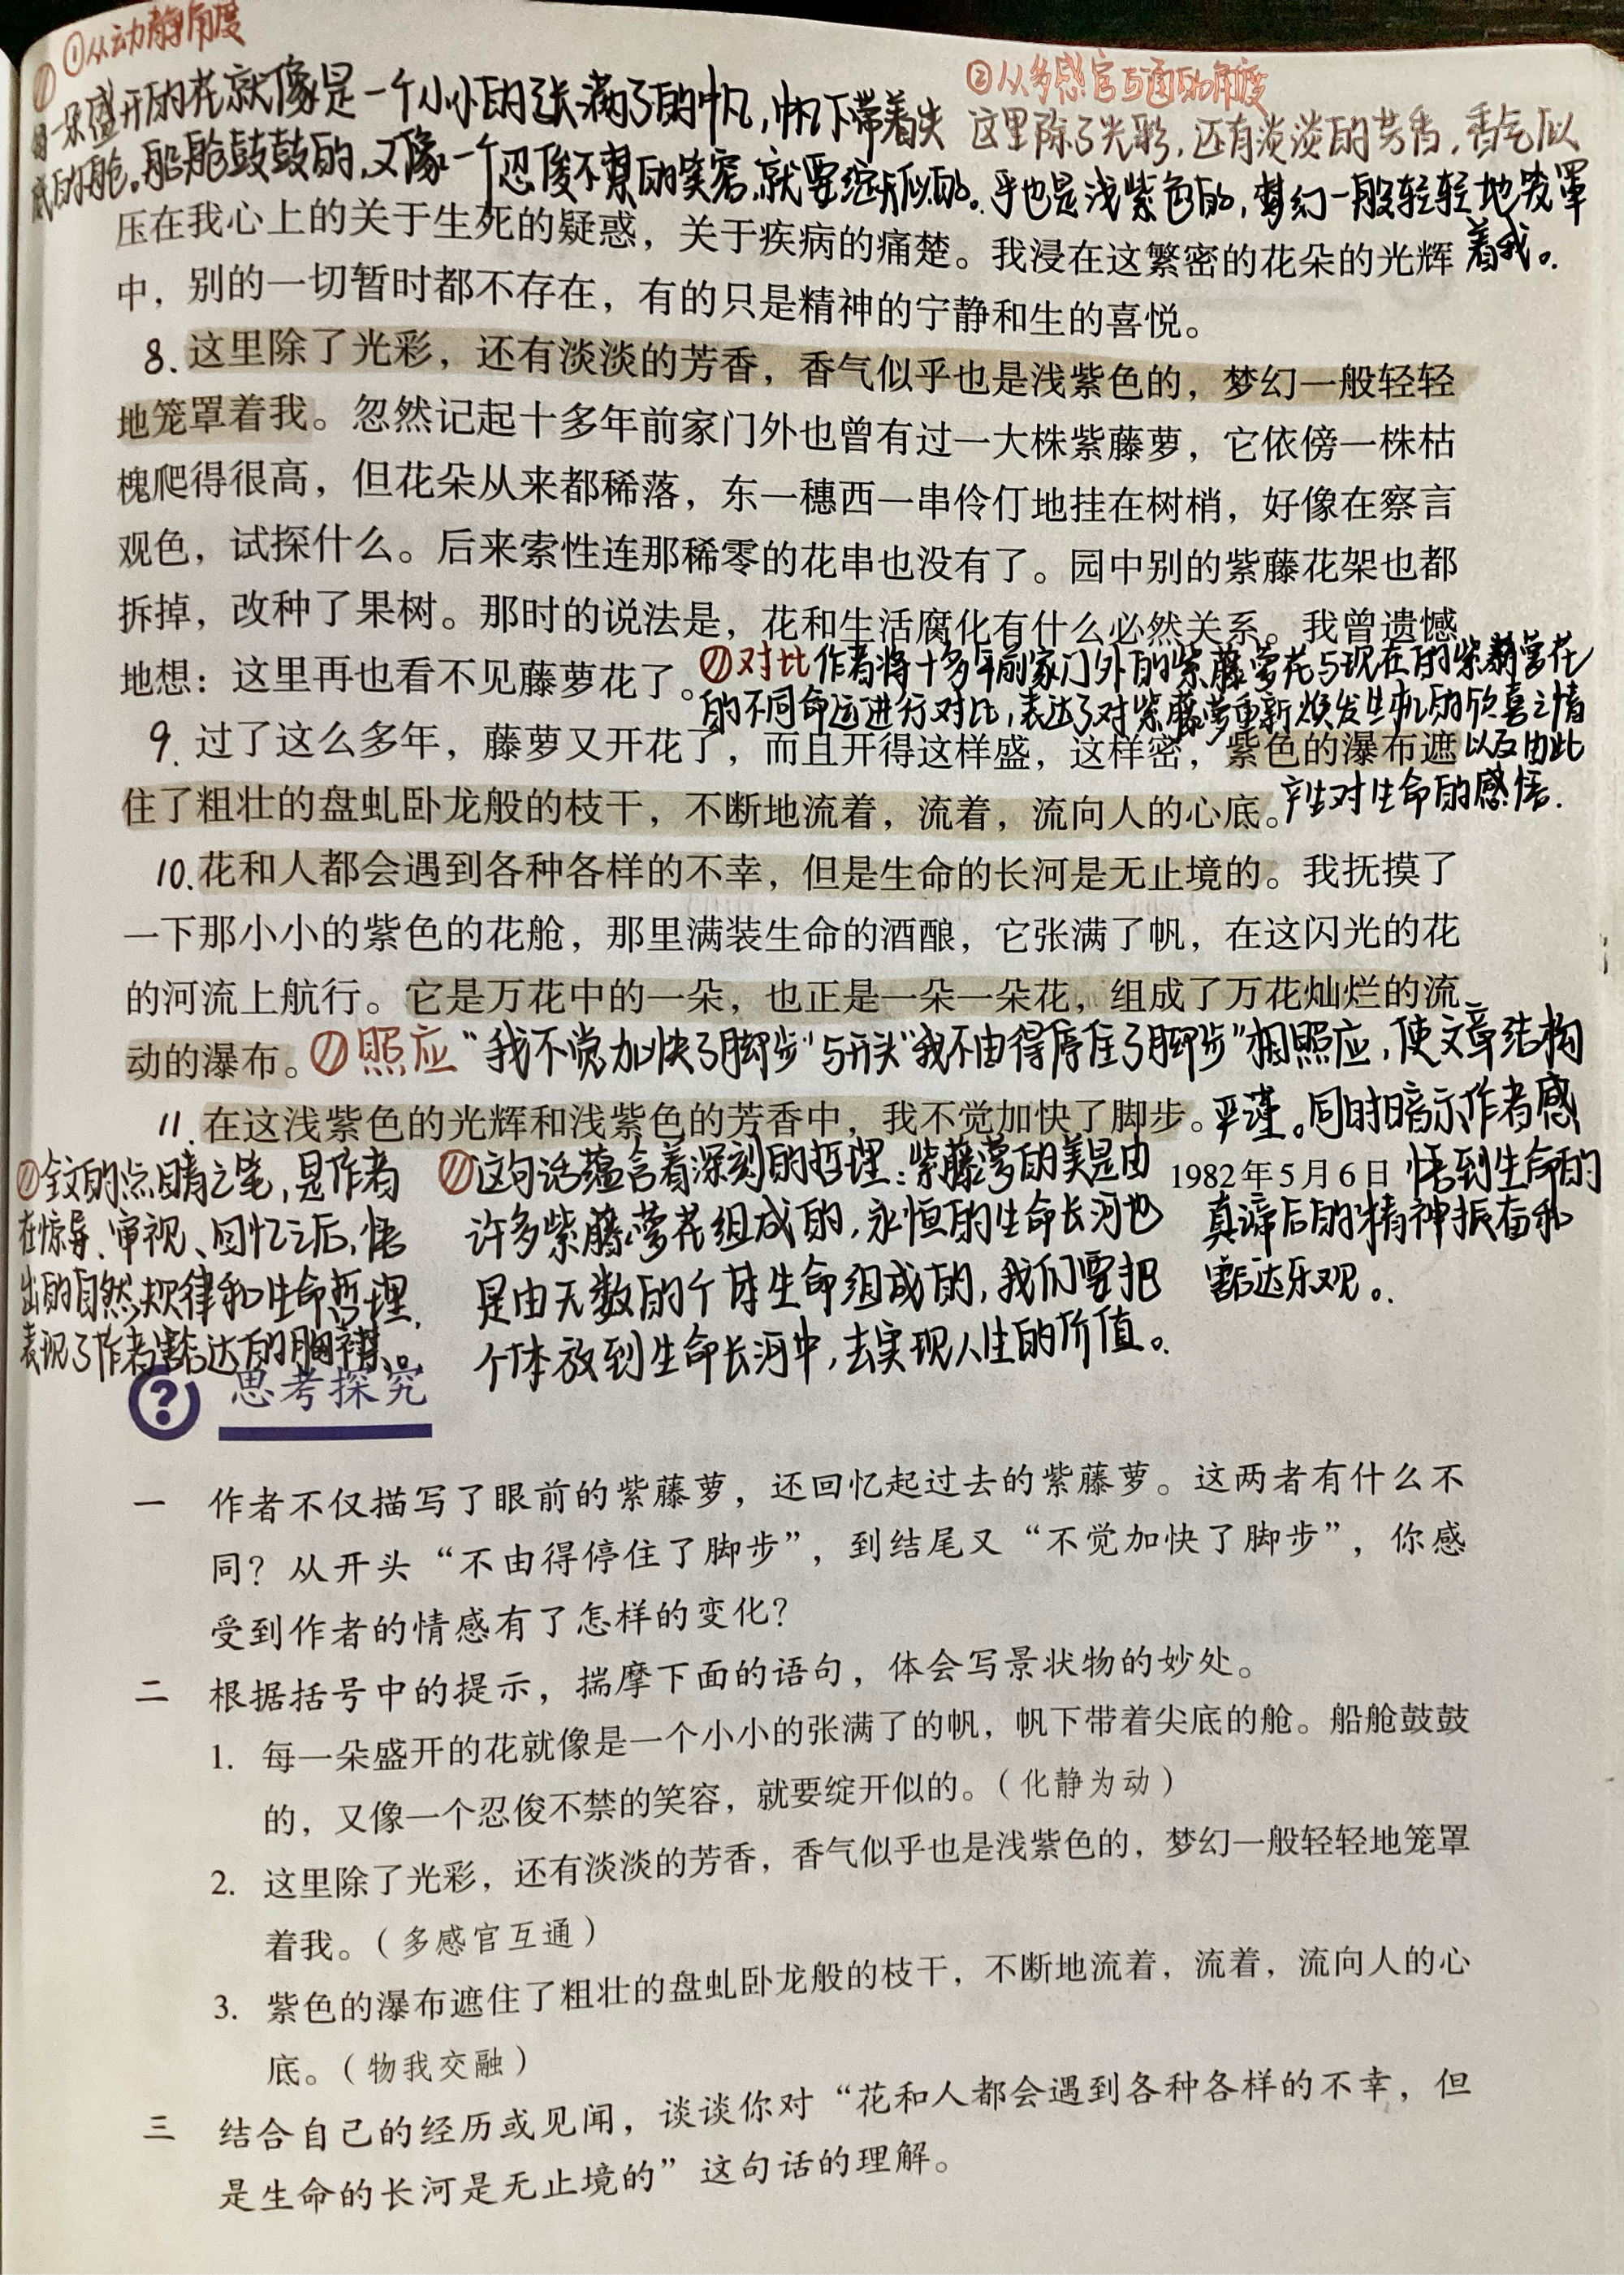 ①从动静角度
②从多感官互通的角度
每一朵盛开的花就像是一个小小的张满了的帆，帆下带着尖
底的舱。船舱鼓鼓的，又像一个忍俊不禁的笑容，就要绽开似的。
这里除了光彩，还有淡淡的芳香，香气似
乎也是浅紫色的，梦幻一般轻轻地笼罩
着我。
压在我心上的关于生死的疑惑，关于疾病的痛楚。我浸在这繁密的花朵的光辉
中，别的一切暂时都不存在，有的只是精神的宁静和生的喜悦。
8.这里除了光彩，还有淡淡的芳香，香气似乎也是浅紫色的，梦幻一般轻轻
地笼罩着我。忽然记起十多年前家门外也曾有过一大株紫藤萝，它依傍一株枯
槐爬得很高，但花朵从来都稀落，东一穗西一串伶仃地挂在树梢，好像在察言
观色，试探什么。后来索性连那稀零的花串也没有了。园中别的紫藤花架也都
拆掉，改种了果树。那时的说法是，花和生活腐化有什么必然关系。我曾遗憾
地想：这里再也看不见藤萝花了。
对比 作者将十多年前家门外的紫藤萝花与现在的紫藤萝花
的不同命运进行对比，表达了对紫藤萝重新焕发生机的欣喜之情
以及由此
产生对生命的感悟.
9.过了这么多年，藤萝又开花了，而且开得这样盛，这样密，紫色的瀑布遮
住了粗壮的盘虬卧龙般的枝干，不断地流着，流着，流向人的心底。
10.花和人都会遇到各种各样的不幸，但是生命的长河是无止境的。我抚摸了
一下那小小的紫色的花舱，那里满装生命的酒酿，它张满了帆，在这闪光的花
的河流上航行。它是万花中的一朵，也正是一朵一朵花，组成了万花灿烂的流
动的瀑布。
照应 “我不觉加快了脚步”与开头“我不由得停住了脚步”相照应，使文章结构
平谨。同时暗示作者感
悟到生命的
真谛后的精神振奋和
豁达乐观。
11.在这浅紫色的光辉和浅紫色的芳香中，我不觉加快了脚步。
1982年5月6日
全文的点睛之笔，是作者
在惊异、审视、回忆之后，悟
出的自然规律和生命哲理，
表现了作者豁达的胸襟。
这句话蕴含着深刻的哲理：紫藤萝的美是由
许多紫藤萝花组成的，永恒的生命长河也
是由无数的个体生命组成的，我们要把
个体放到生命长河中，去实现人生的价值。
思考探究
一 作者不仅描写了眼前的紫藤萝，还回忆起过去的紫藤萝。这两者有什么不
同？从开头“不由得停住了脚步”，到结尾又“不觉加快了脚步”，你感
受到作者的情感有了怎样的变化？
二 根据括号中的提示，揣摩下面的语句，体会写景状物的妙处。
1. 每一朵盛开的花就像是一个小小的张满了的帆，帆下带着尖底的舱。船舱鼓鼓
的，又像一个忍俊不禁的笑容，就要绽开似的。（化静为动）
2. 这里除了光彩，还有淡淡的芳香，香气似乎也是浅紫色的，梦幻一般轻轻地笼罩
着我。（多感官互通）
3. 紫色的瀑布遮住了粗壮的盘虬卧龙般的枝干，不断地流着，流着，流向人的心
底。（物我交融）
三 结合自己的经历或见闻，谈谈你对“花和人都会遇到各种各样的不幸，但
是生命的长河是无止境的”这句话的理解。